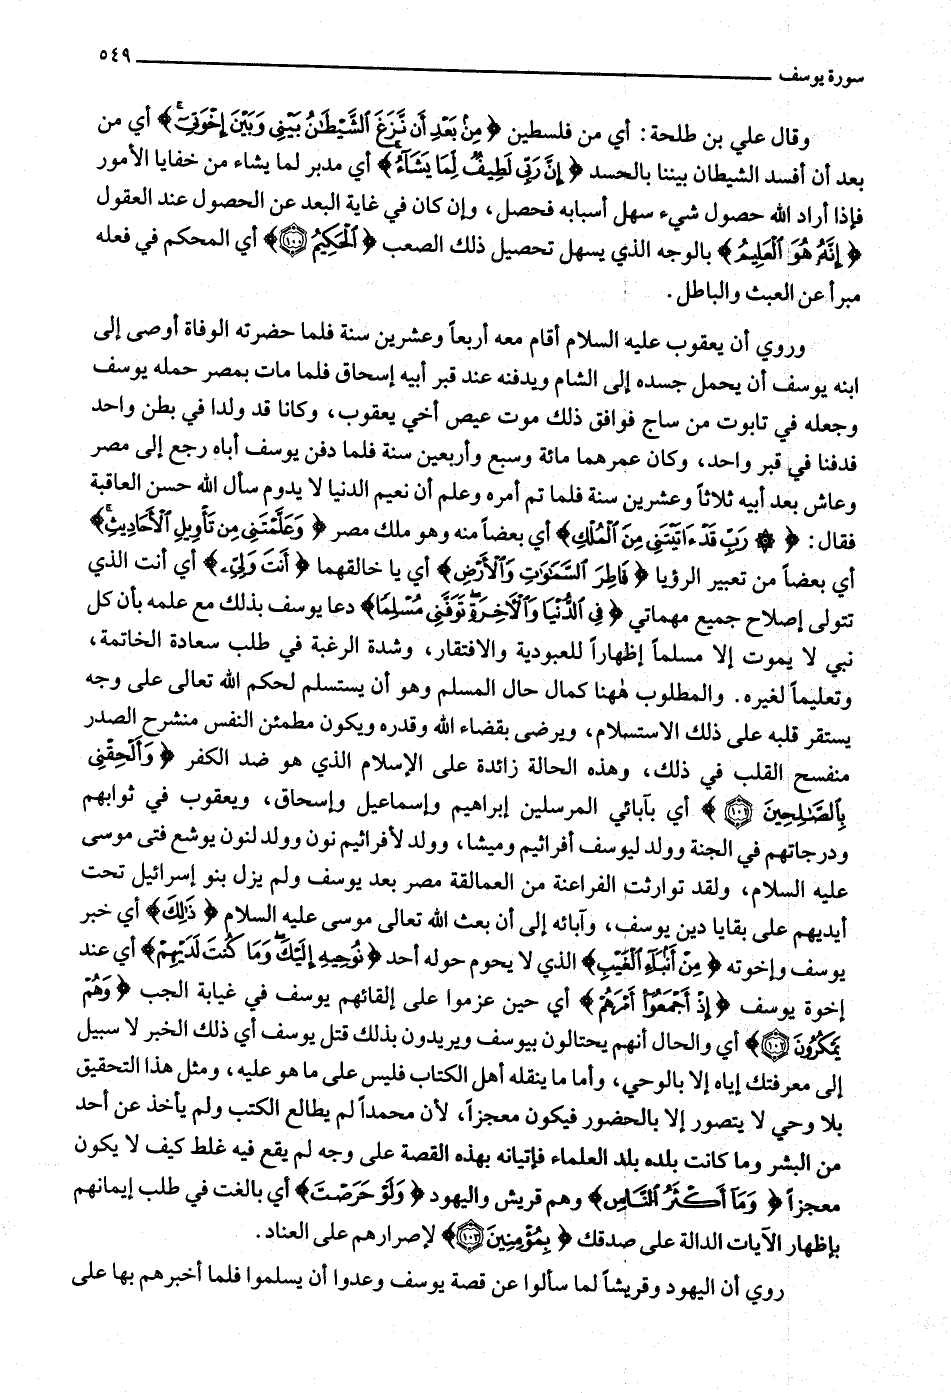 سورة يوسف ٥٤٩
وقال علي بن طلحة: أي من فلسطين ﴿ مِنۢ بَعْدِ أَن نَّزَغَ ٱلشَّيْطَٰنُ بَيْنِى وَبَيْنَ إِخْوَتِىٓ ۚ ﴾ أي من
بعد أن أفسد الشيطان بيننا بالحسد ﴿ إِنَّ رَبِّى لَطِيفٌ لِّمَا يَشَآءُ ۚ ﴾ أي مدبر لما يشاء من خفايا الأمور
فإذا أراد الله حصول شيء سهل أسبابه فحصل، وإن كان في غاية البعد عن الحصول عند العقول
﴿ إِنَّهُۥ هُوَ ٱلْعَلِيمُ ﴾ بالوجه الذي يسهل تحصيل ذلك الصعب ﴿ ٱلْحَكِيمُ ١٠٠ ﴾ أي المحكم في فعله
مبرأ عن العبث والباطل.
وروي أن يعقوب عليه السلام أقام معه أربعاً وعشرين سنة فلما حضرته الوفاة أوصى إلى
ابنه يوسف أن يحمل جسده إلى الشام ويدفنه عند قبر أبيه إسحاق فلما مات بمصر حمله يوسف
وجعله في تابوت من ساج فوافق ذلك موت عيص أخي يعقوب، وكانا قد ولدا في بطن واحد
فدفنا في قبر واحد، وكان عمرهما مائة وسبع وأربعين سنة فلما دفن يوسف أباه رجع إلى مصر
وعاش بعد أبيه ثلاثاً وعشرين سنة فلما تم أمره وعلم أن نعيم الدنيا لا يدوم سأل الله حسن العاقبة
فقال: ﴿ ۞ رَبِّ قَدْ ءَاتَيْتَنِى مِنَ ٱلْمُلْكِ ﴾ أي بعضاً منه وهو ملك مصر ﴿ وَعَلَّمْتَنِى مِن تَأْوِيلِ ٱلْأَحَادِيثِ ۚ ﴾
أي بعضاً من تعبير الرؤيا ﴿ فَاطِرَ ٱلسَّمَٰوَٰتِ وَٱلْأَرْضِ ﴾ أي يا خالقهما ﴿ أَنتَ وَلِىِّۦ ﴾ أي أنت الذي
تتولى إصلاح جميع مهماتي ﴿ فِى ٱلدُّنْيَا وَٱلْءَاخِرَةِ ۖ تَوَفَّنِى مُسْلِمًا ﴾ دعا يوسف بذلك مع علمه بأن كل
نبي لا يموت إلا مسلماً إظهاراً للعبودية والافتقار، وشدة الرغبة في طلب سعادة الخاتمة،
وتعليماً لغيره. والمطلوب ههنا كمال حال المسلم وهو أن يستسلم لحكم الله تعالى على وجه
يستقر قلبه على ذلك الاستسلام، ويرضى بقضاء الله وقدره ويكون مطمئن النفس منشرح الصدر
منفسح القلب في ذلك، وهذه الحالة زائدة على الإسلام الذي هو ضد الكفر ﴿ وَأَلْحِقْنِى
بِٱلصَّٰلِحِينَ ١٠١ ﴾ أي بآبائي المرسلين إبراهيم وإسماعيل وإسحاق، ويعقوب في ثوابهم
ودرجاتهم في الجنة وولد ليوسف أفراثيم وميشا، وولد لأفراثيم نون وولد لنون يوشع فتى موسى
عليه السلام، ولقد توارثت الفراعنة من العمالقة مصر بعد يوسف ولم يزل بنو إسرائيل تحت
أيديهم على بقايا دين يوسف، وآبائه إلى أن بعث الله تعالى موسى عليه السلام ﴿ ذَٰلِكَ ﴾ أي خبر
يوسف وإخوته ﴿ مِنْ أَنۢبَآءِ ٱلْغَيْبِ ﴾ الذي لا يحوم حوله أحد ﴿ نُوحِيهِ إِلَيْكَ ۖ وَمَا كُنتَ لَدَيْهِمْ ﴾ أي عند
إخوة يوسف ﴿ إِذْ أَجْمَعُوٓا۟ أَمْرَهُمْ ﴾ أي حين عزموا على إلقائهم يوسف في غيابة الجب ﴿ وَهُمْ
يَمْكُرُونَ ١٠٢ ﴾ أي والحال أنهم يحتالون بيوسف ويريدون بذلك قتل يوسف أي ذلك الخبر لا سبيل
إلى معرفتك إياه إلا بالوحي، وأما ما ينقله أهل الكتاب فليس على ما هو عليه، ومثل هذا التحقيق
بلا وحي لا يتصور إلا بالحضور فيكون معجزاً، لأن محمداً لم يطالع الكتب ولم يأخذ عن أحد
من البشر وما كانت بلده بلد العلماء فإتيانه بهذه القصة على وجه لم يقع فيه غلط كيف لا يكون
معجزاً ﴿ وَمَآ أَكْثَرُ ٱلنَّاسِ ﴾ وهم قريش واليهود ﴿ وَلَوْ حَرَصْتَ ﴾ أي بالغت في طلب إيمانهم
بإظهار الآيات الدالة على صدقك ﴿ بِمُؤْمِنِينَ ١٠٣ ﴾ لإصرارهم على العناد.
روي أن اليهود وقريشاً لما سألوا عن قصة يوسف وعدوا أن يسلموا فلما أخبرهم بها على